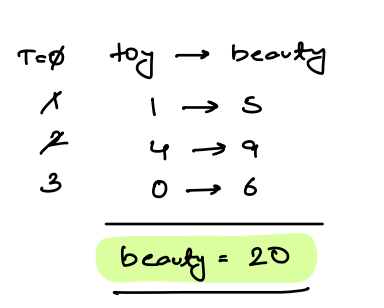 T=0 toy → beauty
1 1 → 5
2 4 → 9
3 0 → 6
beauty = 20